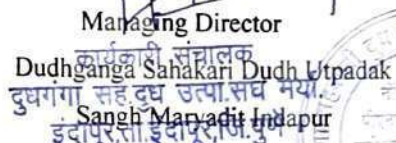 Managing Director
कार्यकारी संचालक
Dudhganga Sahakari Dudh Utpadak
दुधगंगा सह. दुध उत्पा. संघ मर्या.
Sangh Maryadit Indapur
इंदापूर, ता. इंदापूर, जि. पुणे